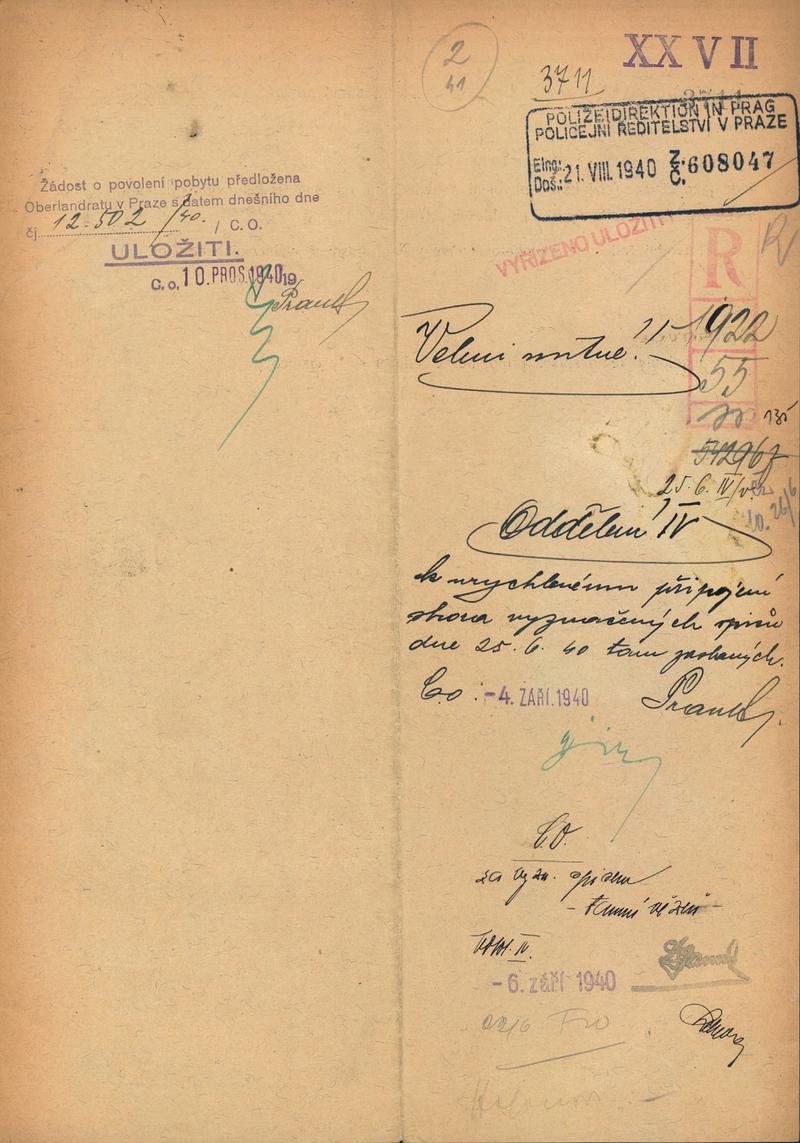 Žádost o povolení pobytu předložena
Oberlandratu v Praze s datem dnešního dne
čj. 12.502/40. , C. O.
ULOŽITI.
C. o. 10. PROS. 1940 19
2
41
3711
XXVII
POLIZEIDIREKTION IN PRAG
POLICEJNÍ ŘEDITELSTVÍ V PRAZE
Eing.:
Doš.: 21. VIII. 1940 Z. Č. 608047
VYŘÍZENO ULOŽITI
R
Velmi nutné!!
1922
55
25. 6. IV/
Oddělení IV
k urychlenému připojení
shora vyznačených spisů
dne 25. 6. 40 tam zaslaných.
Co : - 4. ZÁŘÍ. 1940
C.O.
za vyzn. spisem
IV.
- 6. září 1940